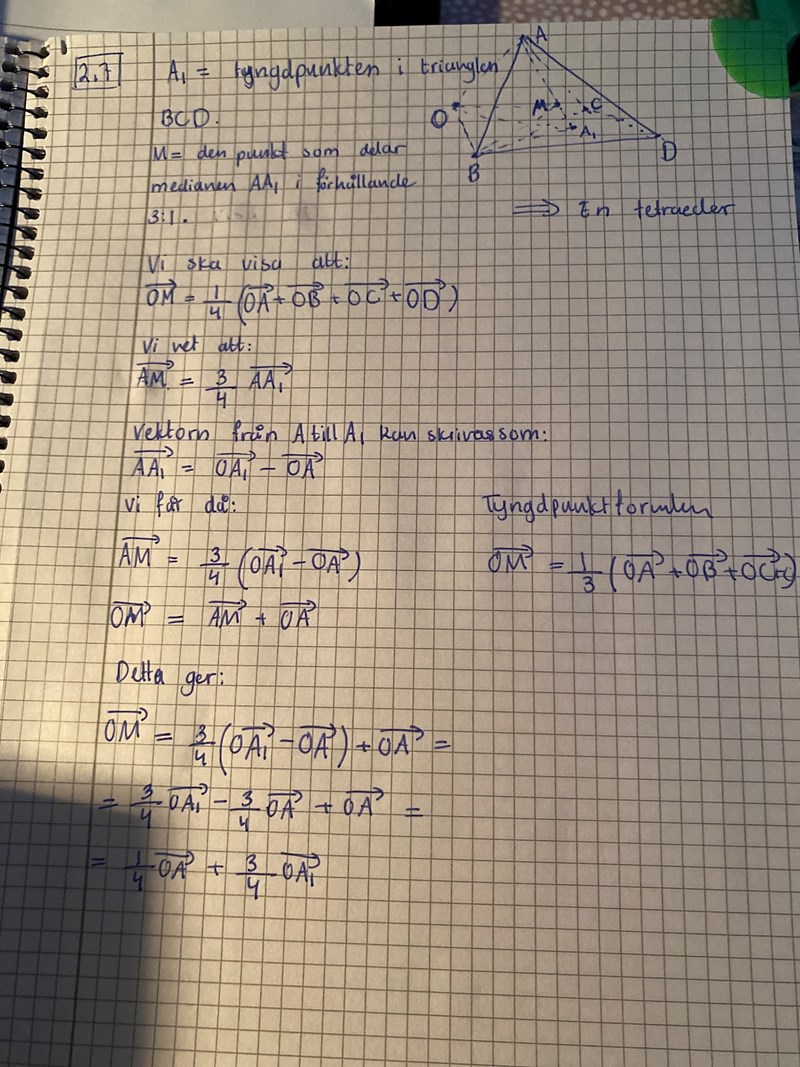 2.7 A₁ = tyngdpunkten i triangeln
BCD.
M = den punkt som delar
medianen AA₁ i förhållande
3:1.
A
O
M
C
A₁
B
D
⟹ En tetraeder
Vi ska visa att:
\overrightarrow{OM} = \frac{1}{4} (\overrightarrow{OA} + \overrightarrow{OB} + \overrightarrow{OC} + \overrightarrow{OD})
Vi vet att:
\overrightarrow{AM} = \frac{3}{4} \overrightarrow{AA₁}
Vektorn från A till A₁ kan skrivas som:
\overrightarrow{AA₁} = \overrightarrow{OA₁} - \overrightarrow{OA}
Vi får då:
\overrightarrow{AM} = \frac{3}{4} (\overrightarrow{OA₁} - \overrightarrow{OA})
\overrightarrow{OM} = \overrightarrow{AM} + \overrightarrow{OA}
Tyngdpunktformlen
\overrightarrow{OM} = \frac{1}{3} (\overrightarrow{OA} + \overrightarrow{OB} + \overrightarrow{OC})
Detta ger:
\overrightarrow{OM} = \frac{3}{4} (\overrightarrow{OA₁} - \overrightarrow{OA}) + \overrightarrow{OA} =
= \frac{3}{4} \overrightarrow{OA₁} - \frac{3}{4} \overrightarrow{OA} + \overrightarrow{OA} =
= \frac{1}{4} \overrightarrow{OA} + \frac{3}{4} \overrightarrow{OA₁}